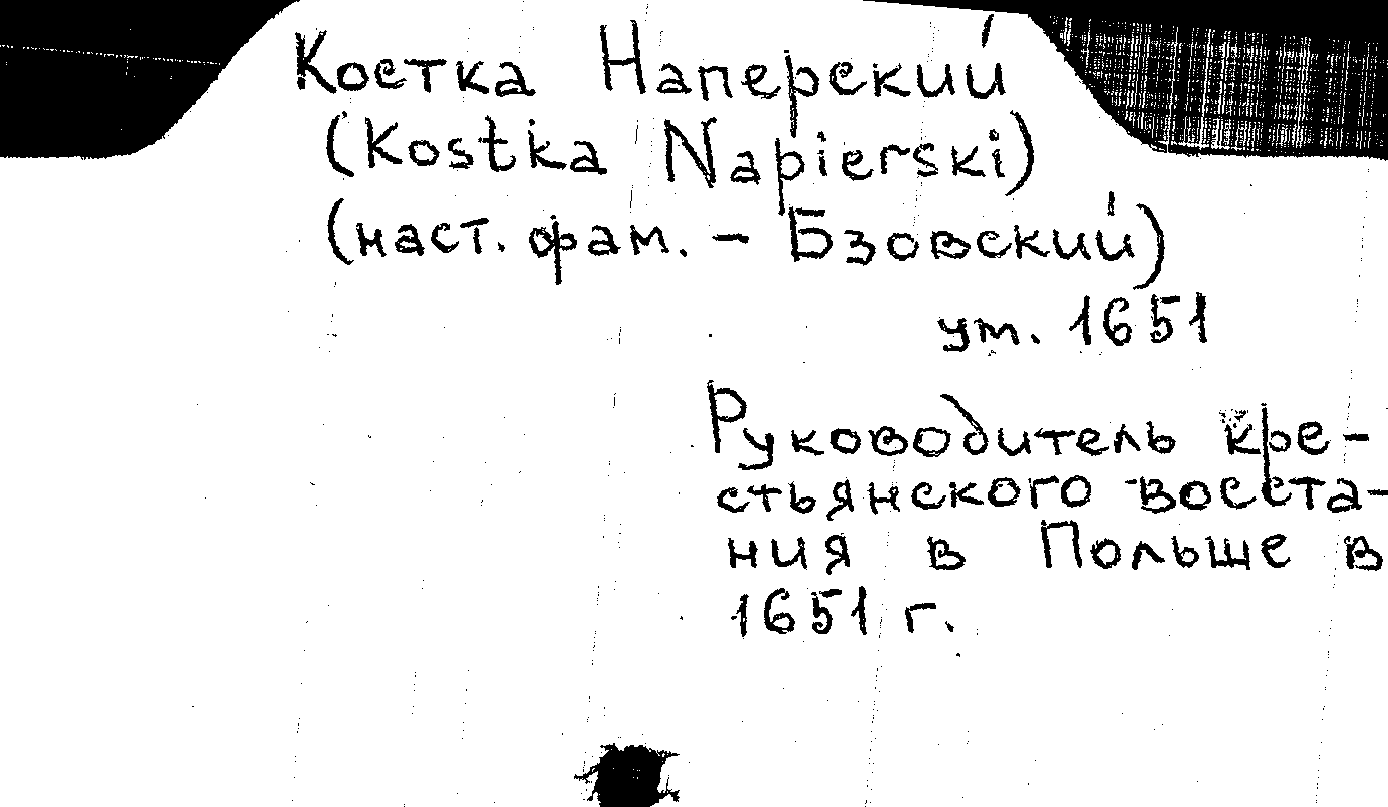 Костка Наперский
(Kostka Napierski)
(наст. фам. – Бзовский)
ум. 1651
Руководитель кре-
стьянского восста-
ния в Польше в
1651 г.